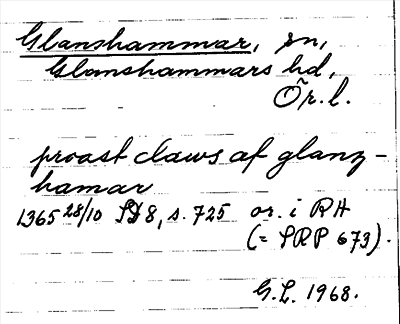 Glanshammar, sn,
Glanshammars hd,
Ör.l.
proast claws af glanz-
hamar
1365 28/10 SD8, s. 725 or. i RA
(= SRP 673).
G.L. 1968.